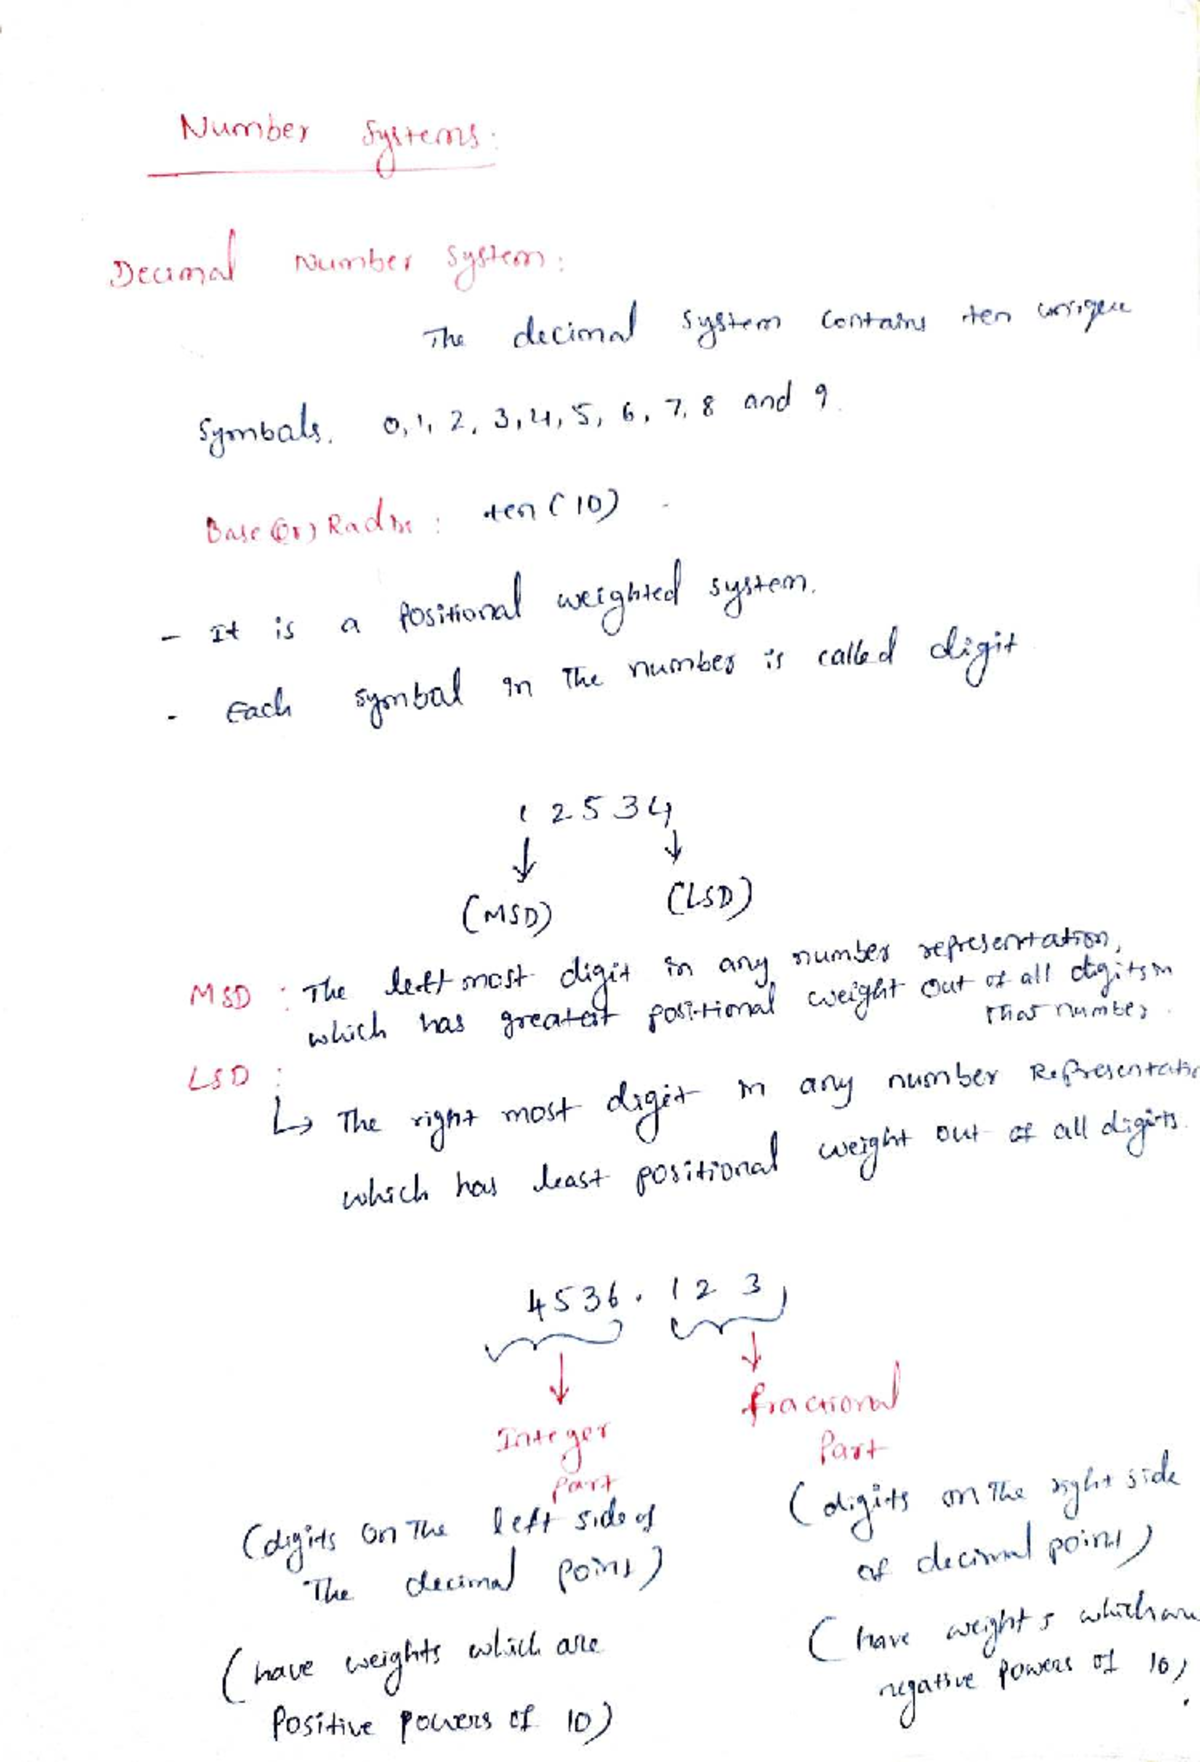 Number Systems:
Decimal Number System:
The decimal system contains ten unique
Symbols. 0, 1, 2, 3, 4, 5, 6, 7, 8 and 9.
Base (or) Radix : ten (10)
- It is a Positional weighted system.
- Each symbol in The number is called digit
1 2 5 3 4
(MSD) (LSD)
MSD : The left most digit in any number representation,
which has greatest positional weight out of all digits in
that number.
LSD :
↳ The right most digit in any number Representatio
which has least positional weight out of all digits.
4536.123
Integer Part
fractional Part
(digits on The left side of
The decimal point)
(digits on The right side
of decimal point)
(have weights which are
Positive powers of 10)
(have weights which are
negative powers of 10)